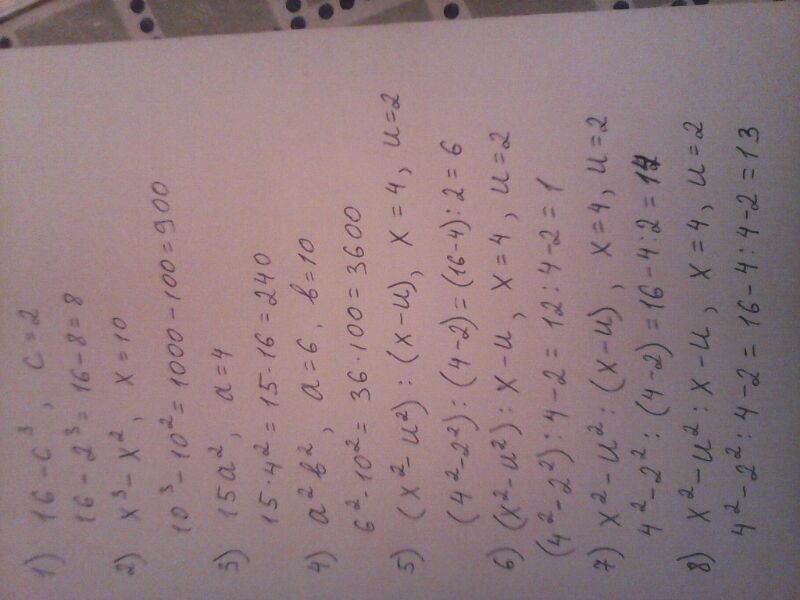 1) 16 - c³, c = 2
16 - 2³ = 16 - 8 = 8
2) x³ - x², x = 10
10³ - 10² = 1000 - 100 = 900
3) 15a², a = 4
15 · 4² = 15 · 16 = 240
4) a²b², a = 6, b = 10
6² · 10² = 36 · 100 = 3600
5) (x² - u²) : (x - u), x = 4, u = 2
(4² - 2²) : (4 - 2) = (16 - 4) : 2 = 6
6) (x² - u²) : x - u, x = 4, u = 2
(4² - 2²) : 4 - 2 = 12 : 4 - 2 = 1
7) x² - u² : (x - u), x = 4, u = 2
4² - 2² : (4 - 2) = 16 - 4 : 2 = 14
8) x² - u² : x - u, x = 4, u = 2
4² - 2² : 4 - 2 = 16 - 4 : 4 - 2 = 13